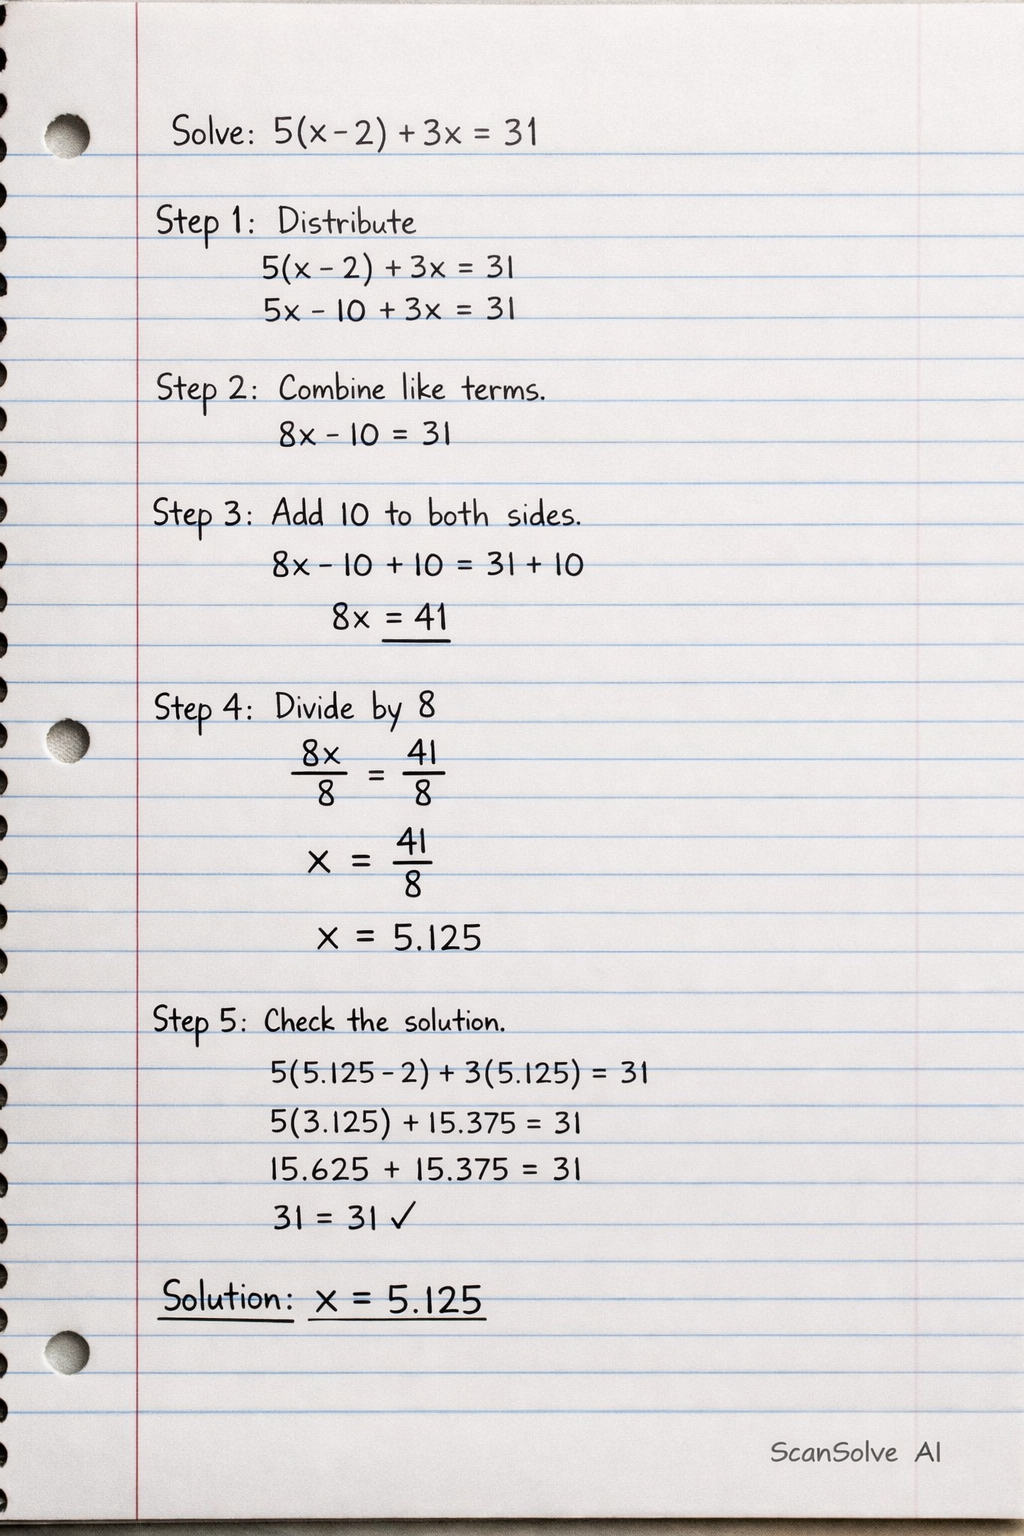 Solve: 5(x - 2) + 3x = 31
Step 1: Distribute
5(x - 2) + 3x = 31
5x - 10 + 3x = 31
Step 2: Combine like terms.
8x - 10 = 31
Step 3: Add 10 to both sides.
8x - 10 + 10 = 31 + 10
8x = 41
Step 4: Divide by 8
8x/8 = 41/8
x = 41/8
x = 5.125
Step 5: Check the solution.
5(5.125 - 2) + 3(5.125) = 31
5(3.125) + 15.375 = 31
15.625 + 15.375 = 31
31 = 31 ✓
Solution: x = 5.125
ScanSolve AI